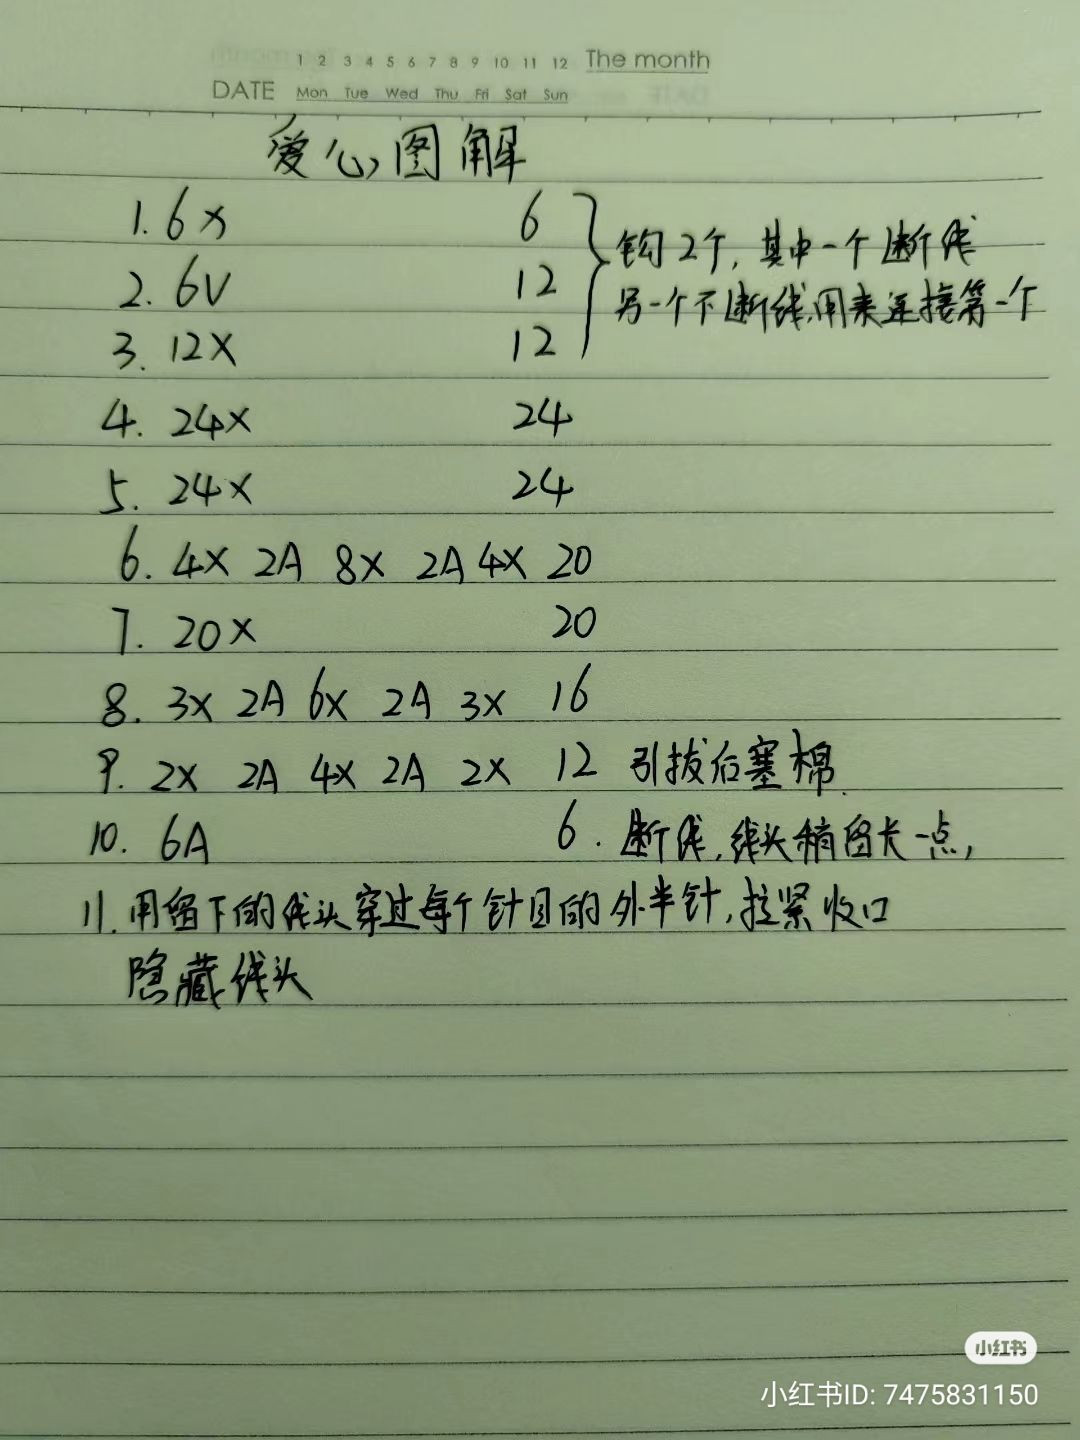 1 2 3 4 5 6 7 8 9 10 11 12 The month
DATE Mon Tue Wed Thu Fri Sat Sun
爱心图解
1. 6X 6
钩2个,其中一个断线
2. 6V 12
另一个不断线,用来连接第一个
3. 12X 12
4. 24X 24
5. 24X 24
6. 4X 2A 8X 2A 4X 20
7. 20X 20
8. 3X 2A 6X 2A 3X 16
9. 2X 2A 4X 2A 2X 12 引拔后塞棉.
10. 6A 6. 断线,线头稍留长一点,
11. 用留下的线头穿过每个针目的外半针,拉紧收口
隐藏线头
小红书
小红书ID: 7475831150